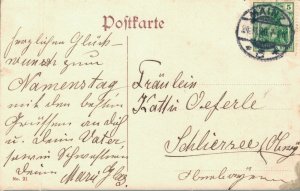 Postkarte
5
herzlichen Glück-
wunsch zum
Namenstag
mit den besten
Grüßen an dich
u. dein Vater
sowie Schwestern
Deine
No. 21
Fräulein
Kathi Oeferle
Schliersee
Oberbayern